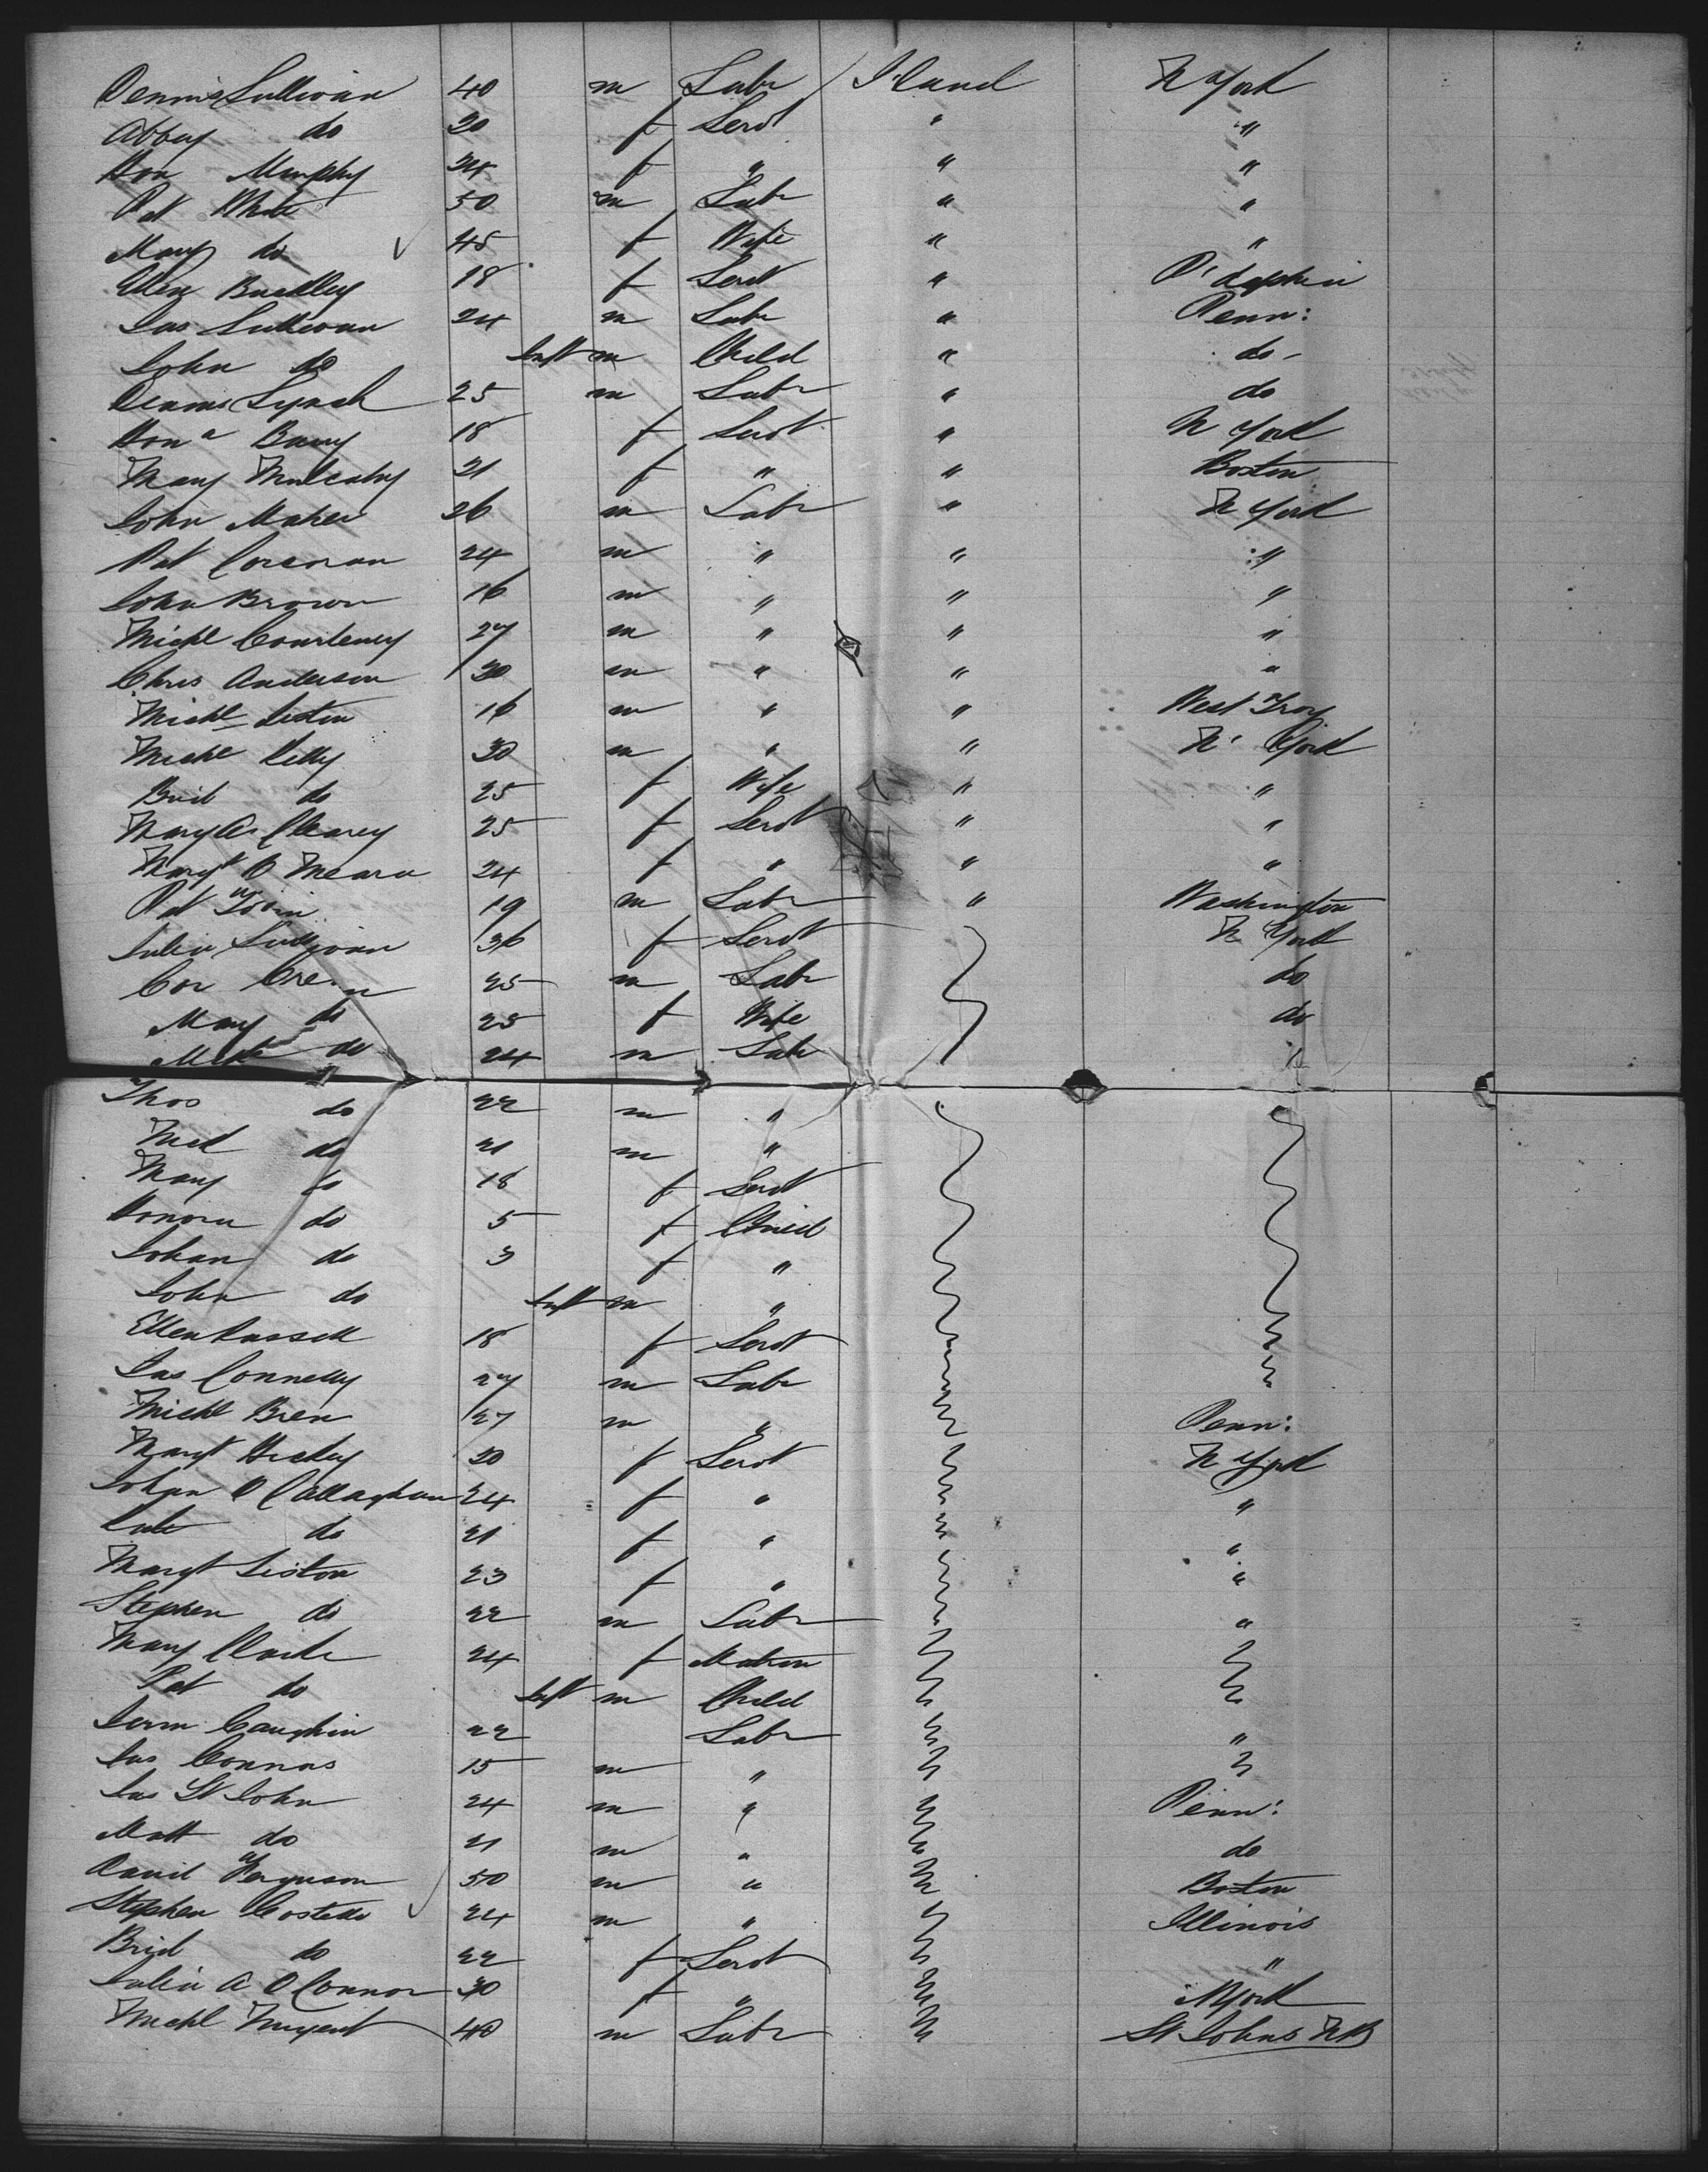 Dennis Sullivan 40 m Labr Ireland N York
Abbey do 20 f Servt " "
Hon Murphy 24 f " " "
Pat White 50 m Labr " "
Mary do 45 f Wife " "
Ellen Buckley 18 f Servt " P'delphia
Jas Sullivan 24 m Labr " Penn:
John do Inft m Child " do -
Dennis Lynch 25 m Labr " do
Hona Barry 18 f Servt " N York
Mary Mulcahy 21 f " " Boston
John Maher 26 m Labr " N York
Pat Corcoran 24 m " " "
John Brown 16 m " " "
Michl Courteney 27 m " " "
Chris Anderson 30 m " " "
Michl Liston 16 m " " West Troy
Michl Kelly 30 m " " N' York
Brid do 25 f Wife " "
Mary A. Cleary 25 f Servt " "
Margt O Meara 24 f " " "
Pat Tobin 19 m Labr " Washington
Julia Sullivan 36 f Servt N York
Cor 25 m Labr do
Mary do 25 f Wife do
do 24 m Labr
Thos do 22 m "
Med do 21 m "
Mary do 18 f Servt
Honora do 5 f Child
Johan do 3 f "
John do Inft m "
Ellen Russell 18 f Servt
Jas Connelly 27 m Labr
Michl Bren 27 m " Penn:
Margt Hickey 20 f Servt N York
Johan O Callaghan 24 f " "
Kate do 21 f " "
Margt Liston 23 f " "
Stephen do 22 m Labr "
Mary Clarke 24 f Matron
Pat do Inft m Child
Jerm Caughlin 22 Labr "
Jas Connors 15 m "
Jas St John 24 m " Penn:
Matt do 21 m " do
David Ferguson 50 m " Boston
Stephen Costello 24 m " Illinois
Brid do 22 f Servt "
Julia A O Connor 30 f " N York
Michl Nugent 40 m Labr St Johns NB